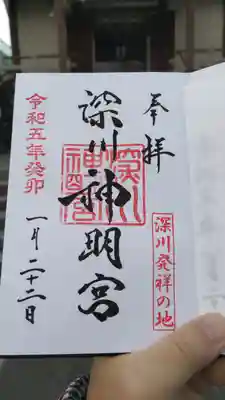 奉拝
深川神明宮
深川神明宮
深川発祥の地
令和五年癸卯
一月二十二日